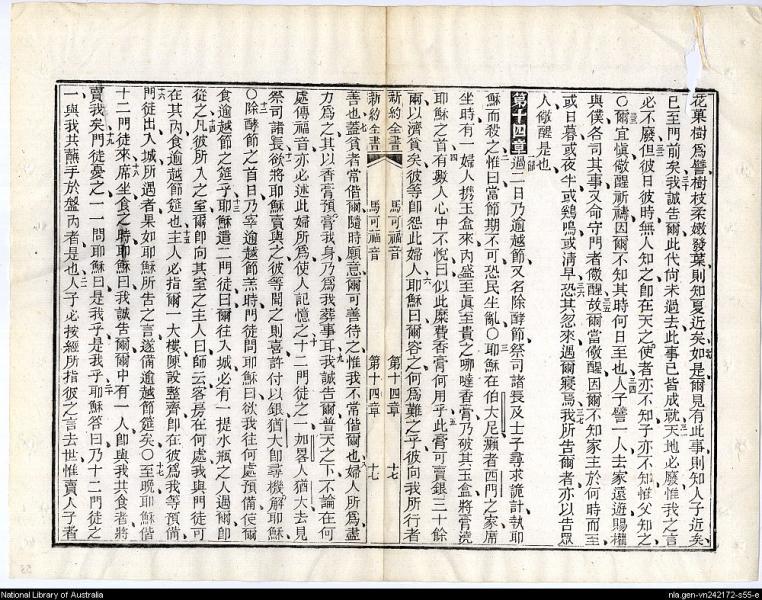 花菓樹為譬樹枝柔嫩發葉則知夏近矣如是爾見有此事則知人子近矣
已至門前矣我誠告爾此代尚未過去此事已皆成就天地必廢惟我之言
必不廢但彼日彼時無人知之即在天之使者亦不知子亦不知惟父知之
〇爾宜愼儆醒祈禱因爾不知其時何日至也人子譬一人去家遠遊賜權
與僕各司其事又命守門者儆醒故爾當儆醒因爾不知家主於何時而至
或日暮或夜半或鷄鳴或清早恐其忽來遇爾寢焉我所告爾者亦以告眾
人儆醒是也
第十四章過二日乃逾越節又名除酵節祭司諸長及士子尋求詭計執耶
穌而殺之惟曰當節期不可恐民生亂〇耶穌在伯大尼癩者西門之家席
坐時有一婦人携玉盒來內盛至眞至貴之哪噠香膏乃破其玉盒將膏澆
耶穌之首有數人心中不悅曰似此糜費香膏何用乎此膏可賣銀三十餘
兩以濟貧矣彼等即怨此婦人耶穌曰爾容之何為難之乎彼向我所行者
新約全書 馬可福音 第十四章 十七
新約全書 馬可福音 第十四章 十七
善也蓋貧者常偕爾隨時願意爾可善待之惟我不常偕爾也婦人所為盡
力為之其以香膏預膏我身乃為我葬事耳我誠告爾普天之下不論在何
處傳福音亦必述此婦所為使人記憶之十二門徒之一加畧人猶大去見
祭司諸長欲將耶穌賣與之彼等聞之則喜許付以銀猶大即尋機解耶穌
〇除酵節之首日乃宰逾越節羔時門徒問耶穌曰欲我往何處預備使爾
食逾越節之筵乎耶穌遣二門徒曰爾往入城必有一提水瓶之人遇爾即
從之凡彼所入之室爾即向其室之主人曰師云客房在何處我與門徒可
在其內食逾越節筵也主人必指爾一大樓陳設整齊即在彼為我等預備
門徒出入城所遇者果如耶穌所告之言遂備逾越節筵矣〇至晩耶穌偕
十二門徒來席坐食之時耶穌曰我誠告爾爾中有一人即與我共食者將
賣我矣門徒憂之一一問耶穌曰是我乎是我乎耶穌答曰乃十二門徒之
一與我共蘸手於盤內者是也人子必按經所指彼之言去世惟賣人子者
National Library of Australia
nla.gen-vn242172-s55-e